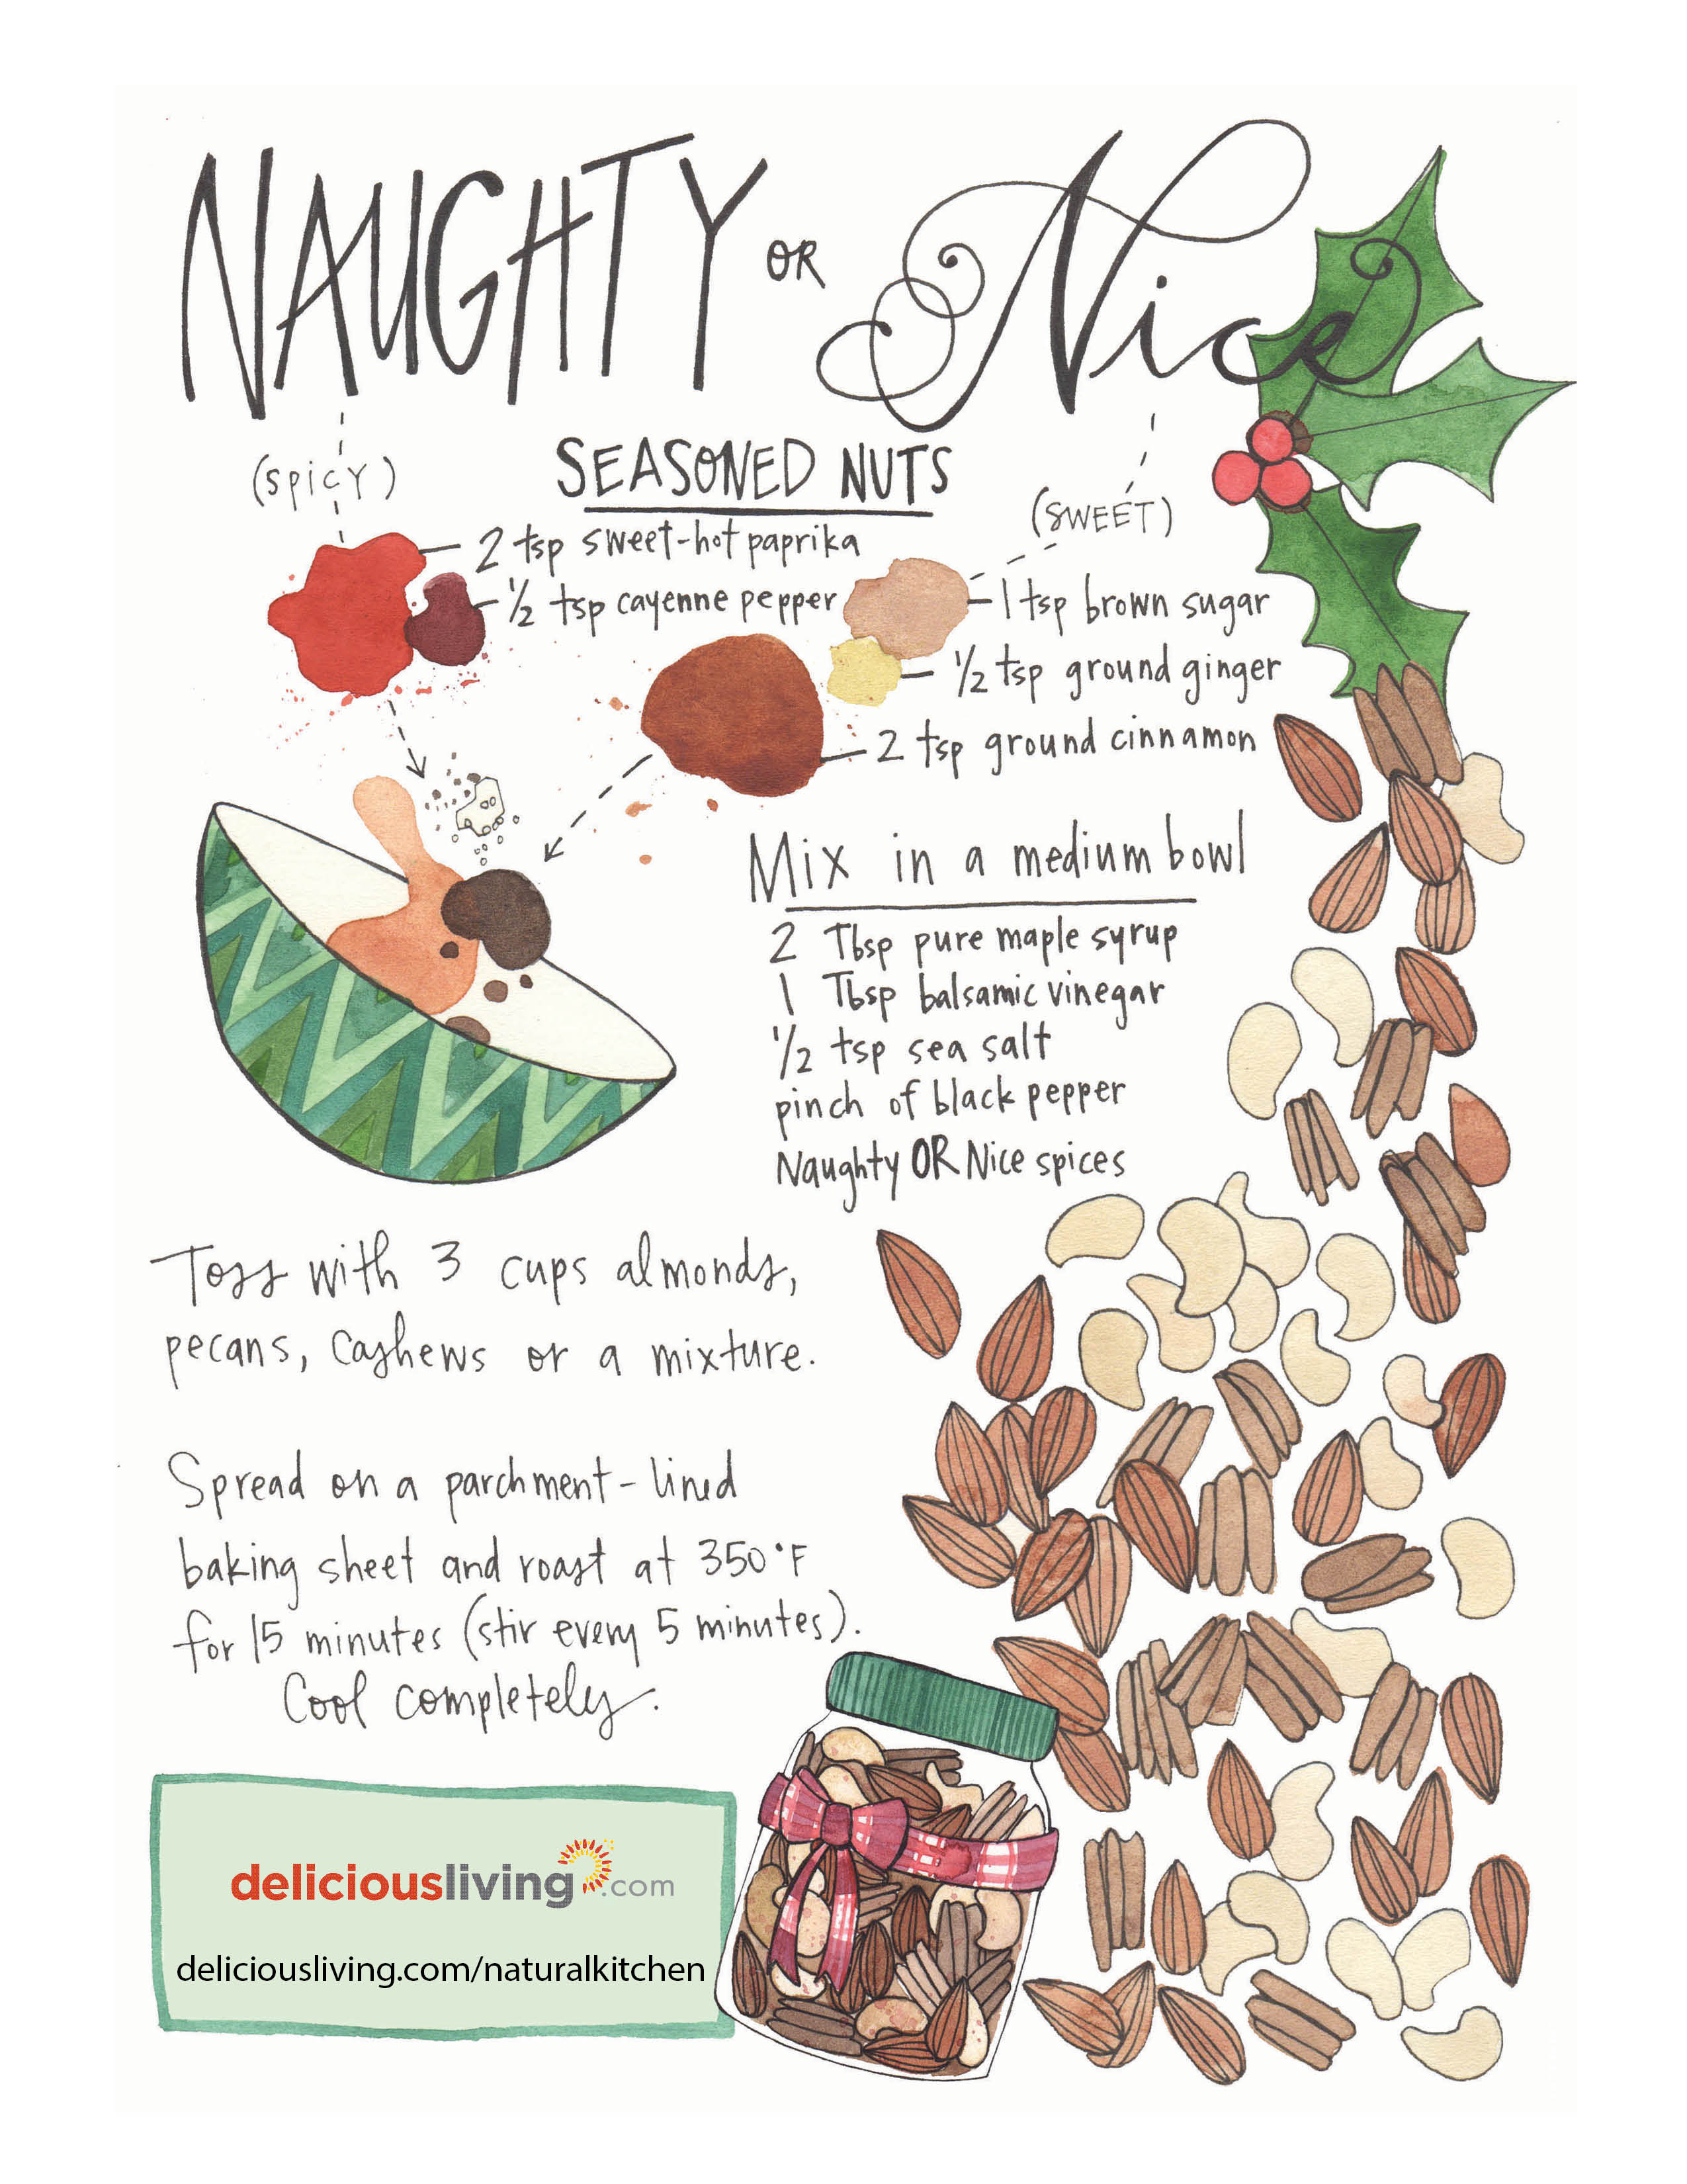 NAUGHTY OR Nice
(SPICY)
SEASONED NUTS
(SWEET)
2 tsp sweet-hot paprika
½ tsp cayenne pepper
1 tsp brown sugar
½ tsp ground ginger
2 tsp ground cinnamon
Mix in a medium bowl
2 Tbsp pure maple syrup
1 Tbsp balsamic vinegar
½ tsp sea salt
pinch of black pepper
Naughty OR Nice spices
Toss with 3 cups almonds,
pecans, cashews or a mixture.
Spread on a parchment-lined
baking sheet and roast at 350°F
for 15 minutes (stir every 5 minutes).
Cool completely.
deliciousliving.com
deliciousliving.com/naturalkitchen